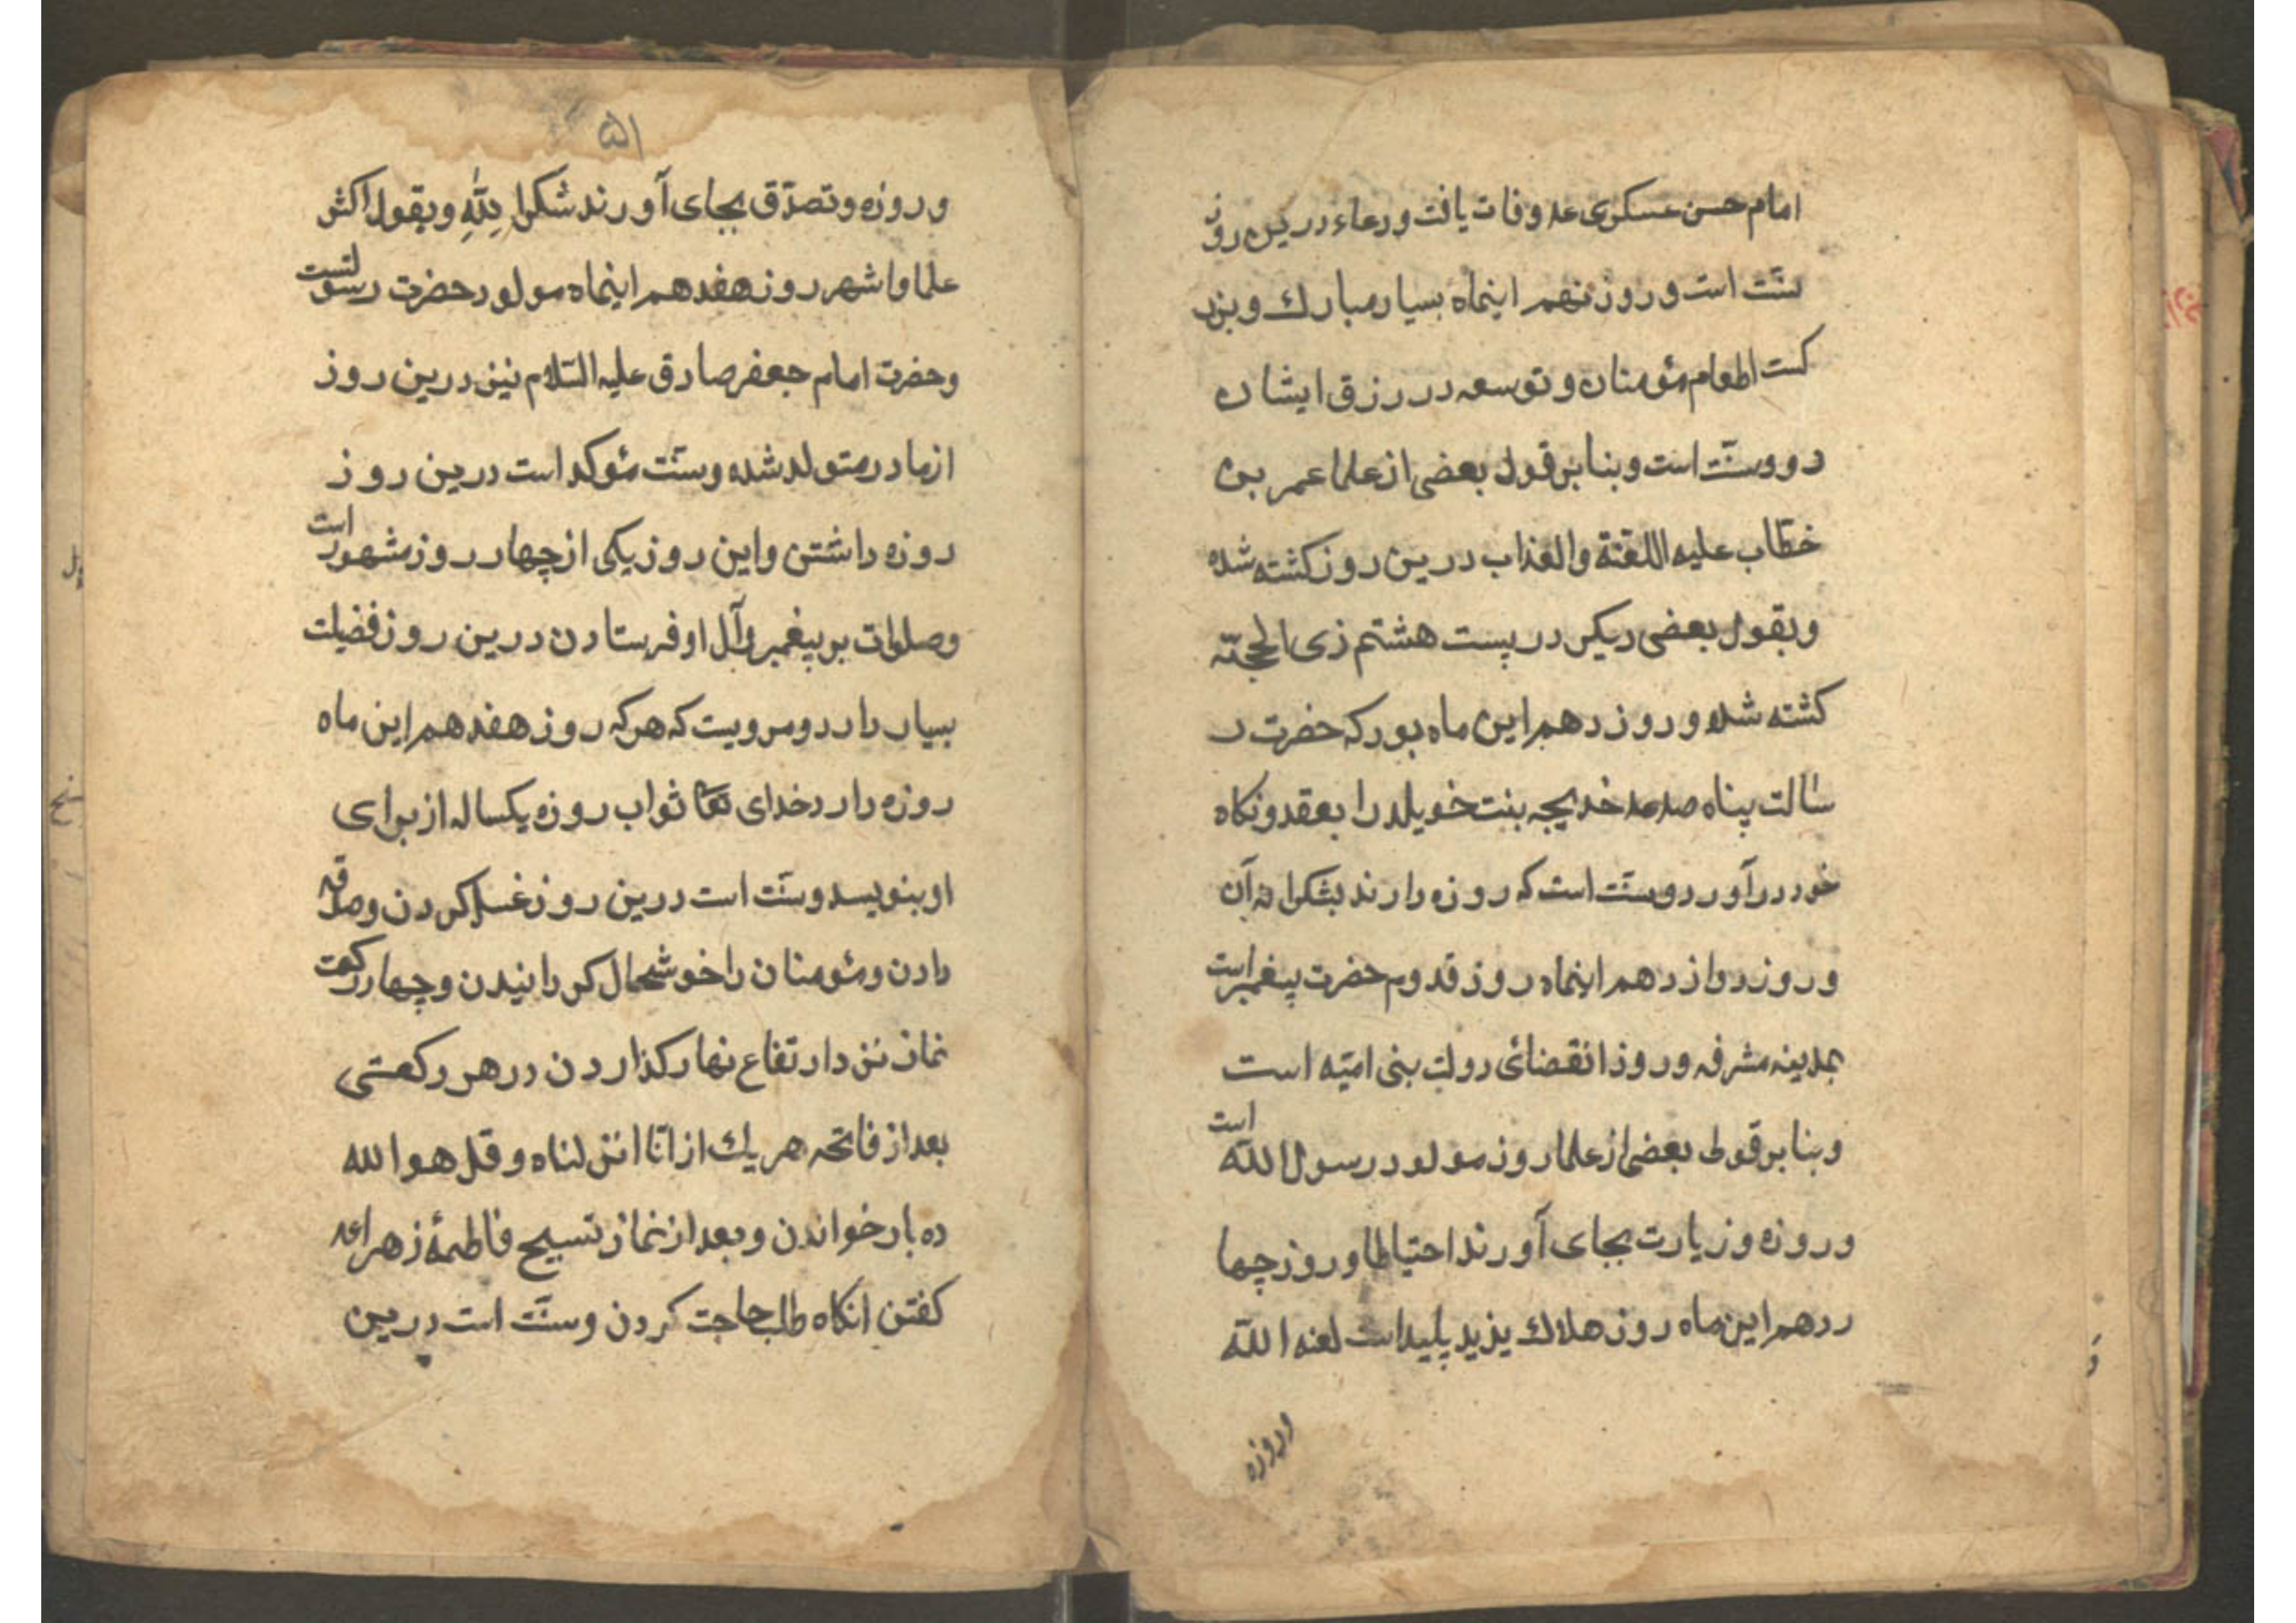 امام حسن عسکری عه وفات یافت ودعاء درین روز
سنّت است و روز نهم اینماه بسیار مبارک وبزر
کست اطعام مؤمنان و توسعه در رزق ایشان
دروسنّت است و بنا بر قول بعضی از علما عمر بن
خطّاب علیه اللعنة والعذاب درین روز کشته شده
وبقول بعضی دیکر در بیست هشتم ذی الحجّه
کشته شده و روز دهم این ماه بود که حضرت ر
سالت پناه صلعه خدیجه بنت خویلد را بعقد ونکاه
خود درآورد وسنّت است که روزه دارند بشکرانه آن
و روز دوازدهم اینماه روز قدوم حضرت پیغمبر است
بمدینه مشرفه و روز انقضائ دولت بنی امیّه است
وبنا بر قول بعضی از علما روز مولود رسول اللّه است
و روزه وزیارت بجای آورند احتیاطا و روز چها
ردهم این ماه روز هلاک یزید پلید است لعنه اللّه
وروزه
۵۱
و روزه وتصدّق بجای آورند شکرا للّه وبقول اکثر
علما واشهر روز هفدهم اینماه مولود حضرت رسولست
وحضرت امام جعفر صادق علیه السّلام نیز درین روز
از مادر متولد شده وسنّت مئوکد است درین روز
روزه داشتن واین روز یکی از چهار روز مشهور است
وصلوات بر پیغمبر وآل او فرستادن درین روز فضیلت
بسیار دارد ومرویست که هرکه روز هفدهم این ماه
روزه دارد خدای تعا ثواب روزه یکساله از برای
او بنویسد وسنّت است درین روز غسل کردن وصدقه
دادن ومئومنان را خوشحال کردانیدن وچهار رکعت
نماز نزد ارتفاع نهار کذاردن در هر رکعتی
بعد از فاتحه هر یک از انّا انزلناه وقل هو الله
ده بار خواندن وبعد از نماز تسبیح فاطمهٔ زهرا عه
کفتن انکاه طلب حاجت کردن وسنّت است درین